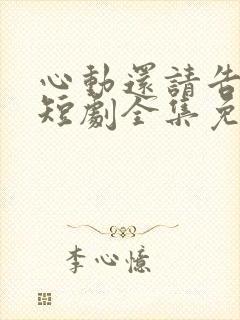 心動還請告
短劇全集免
李心憶